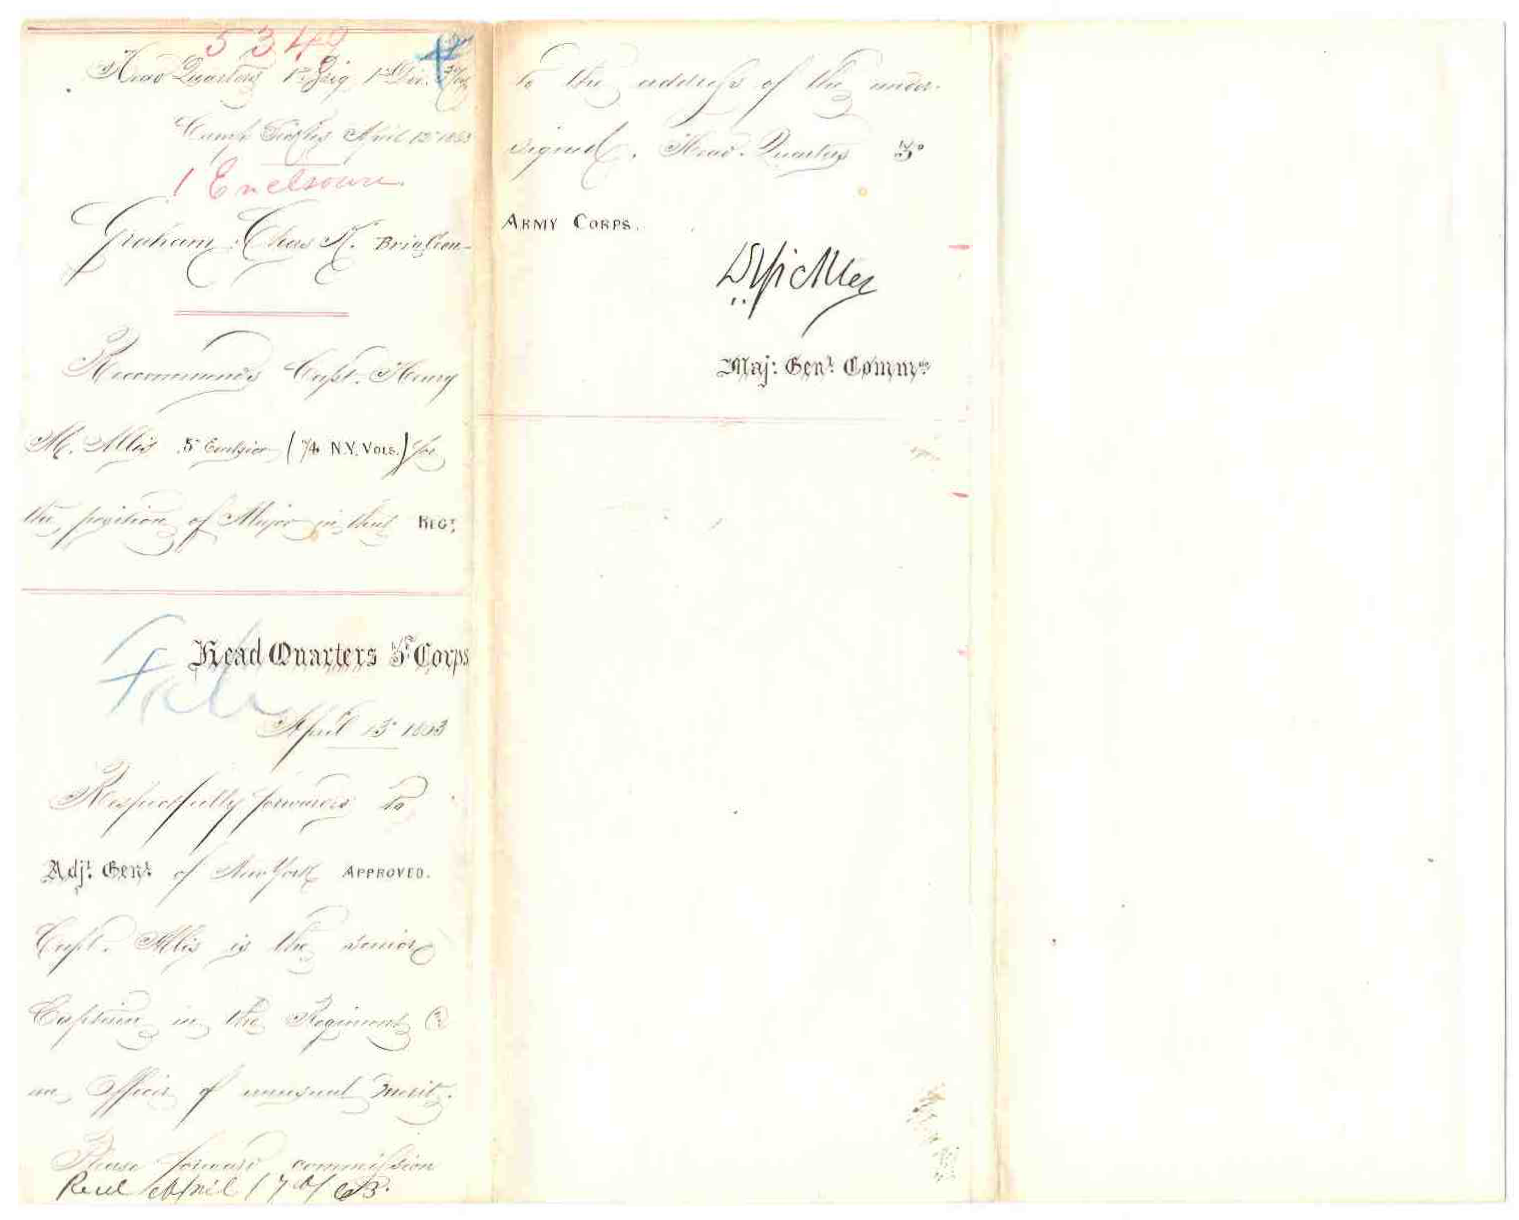 5342
Head Quarters 1st Brig 1st Div. 3d
Camp Sickles April 12 1863
1 Enclosure.
Graham, Chas K. Brig Gen
Recommends Capt. Henry
M. Allis 5" Excelsior (74 N.Y. Vols.) for
the position of Major in that REGT.
Head Quarters 3d Corps
April 13" 1863
Respectfully forwarded to
Adjt. Genl. of New York APPROVED.
Capt. Allis is the senior
Captain in the Regiment &
an Officer of unusual merit.
Please forward commission
Recd April 17th/63.
to the address of the under-
signed, Head-Quarters 3d
ARMY CORPS.
D Sickles
Maj: Genl. Commdg